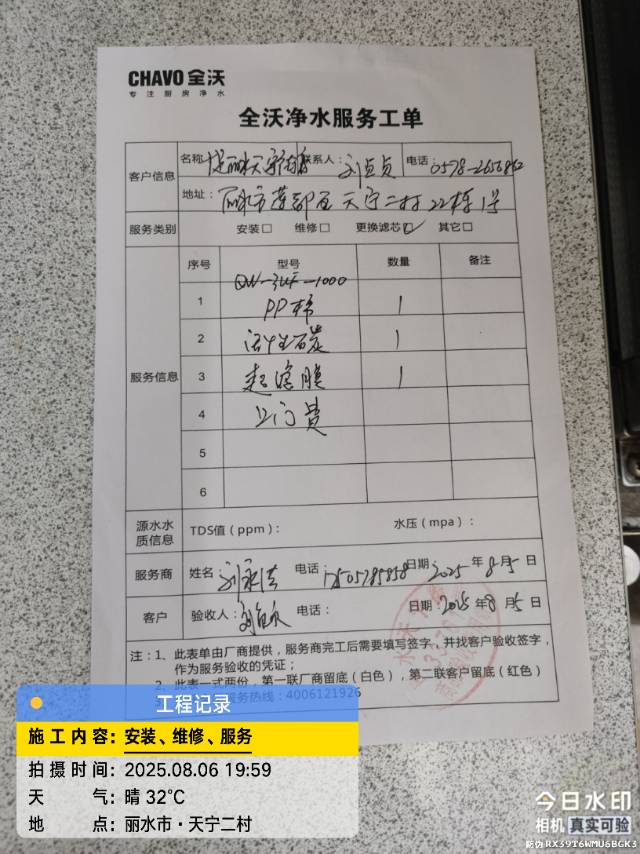 CHAVO 全沃
专注厨房净水
全沃净水服务工单
客户信息 名称 联系人: 刘贞贞 电话: 0578-2656862
地址: 丽水市莲都区天宁二村22栋1号
服务类别 安装□ 维修□ 更换滤芯☑ 其它□
服务信息 序号 型号 数量 备注
QW-3UF-1000
1 PP棉 1
2 活性碳 1
3 超滤膜 1
4 上门费
5
6
源水水质信息 TDS值(ppm): 水压(mpa):
服务商 姓名: 电话: 日期 2025年8月5日
客户 验收人: 电话: 日期: 2025年8月5日
注:1、此表单由厂商提供,服务商完工后需要填写签字、并找客户验收签字,
作为服务验收的凭证;
2、此表一式两份,第一联厂商留底(白色),第二联客户留底(红色)
服务热线:4006121926
工程记录
施工内容: 安装、维修、服务
拍摄时间: 2025.08.06 19:59
天 气: 晴 32℃
地 点: 丽水市·天宁二村
今日水印
相机 真实可验
防伪 RX39T6WMU6BGK3